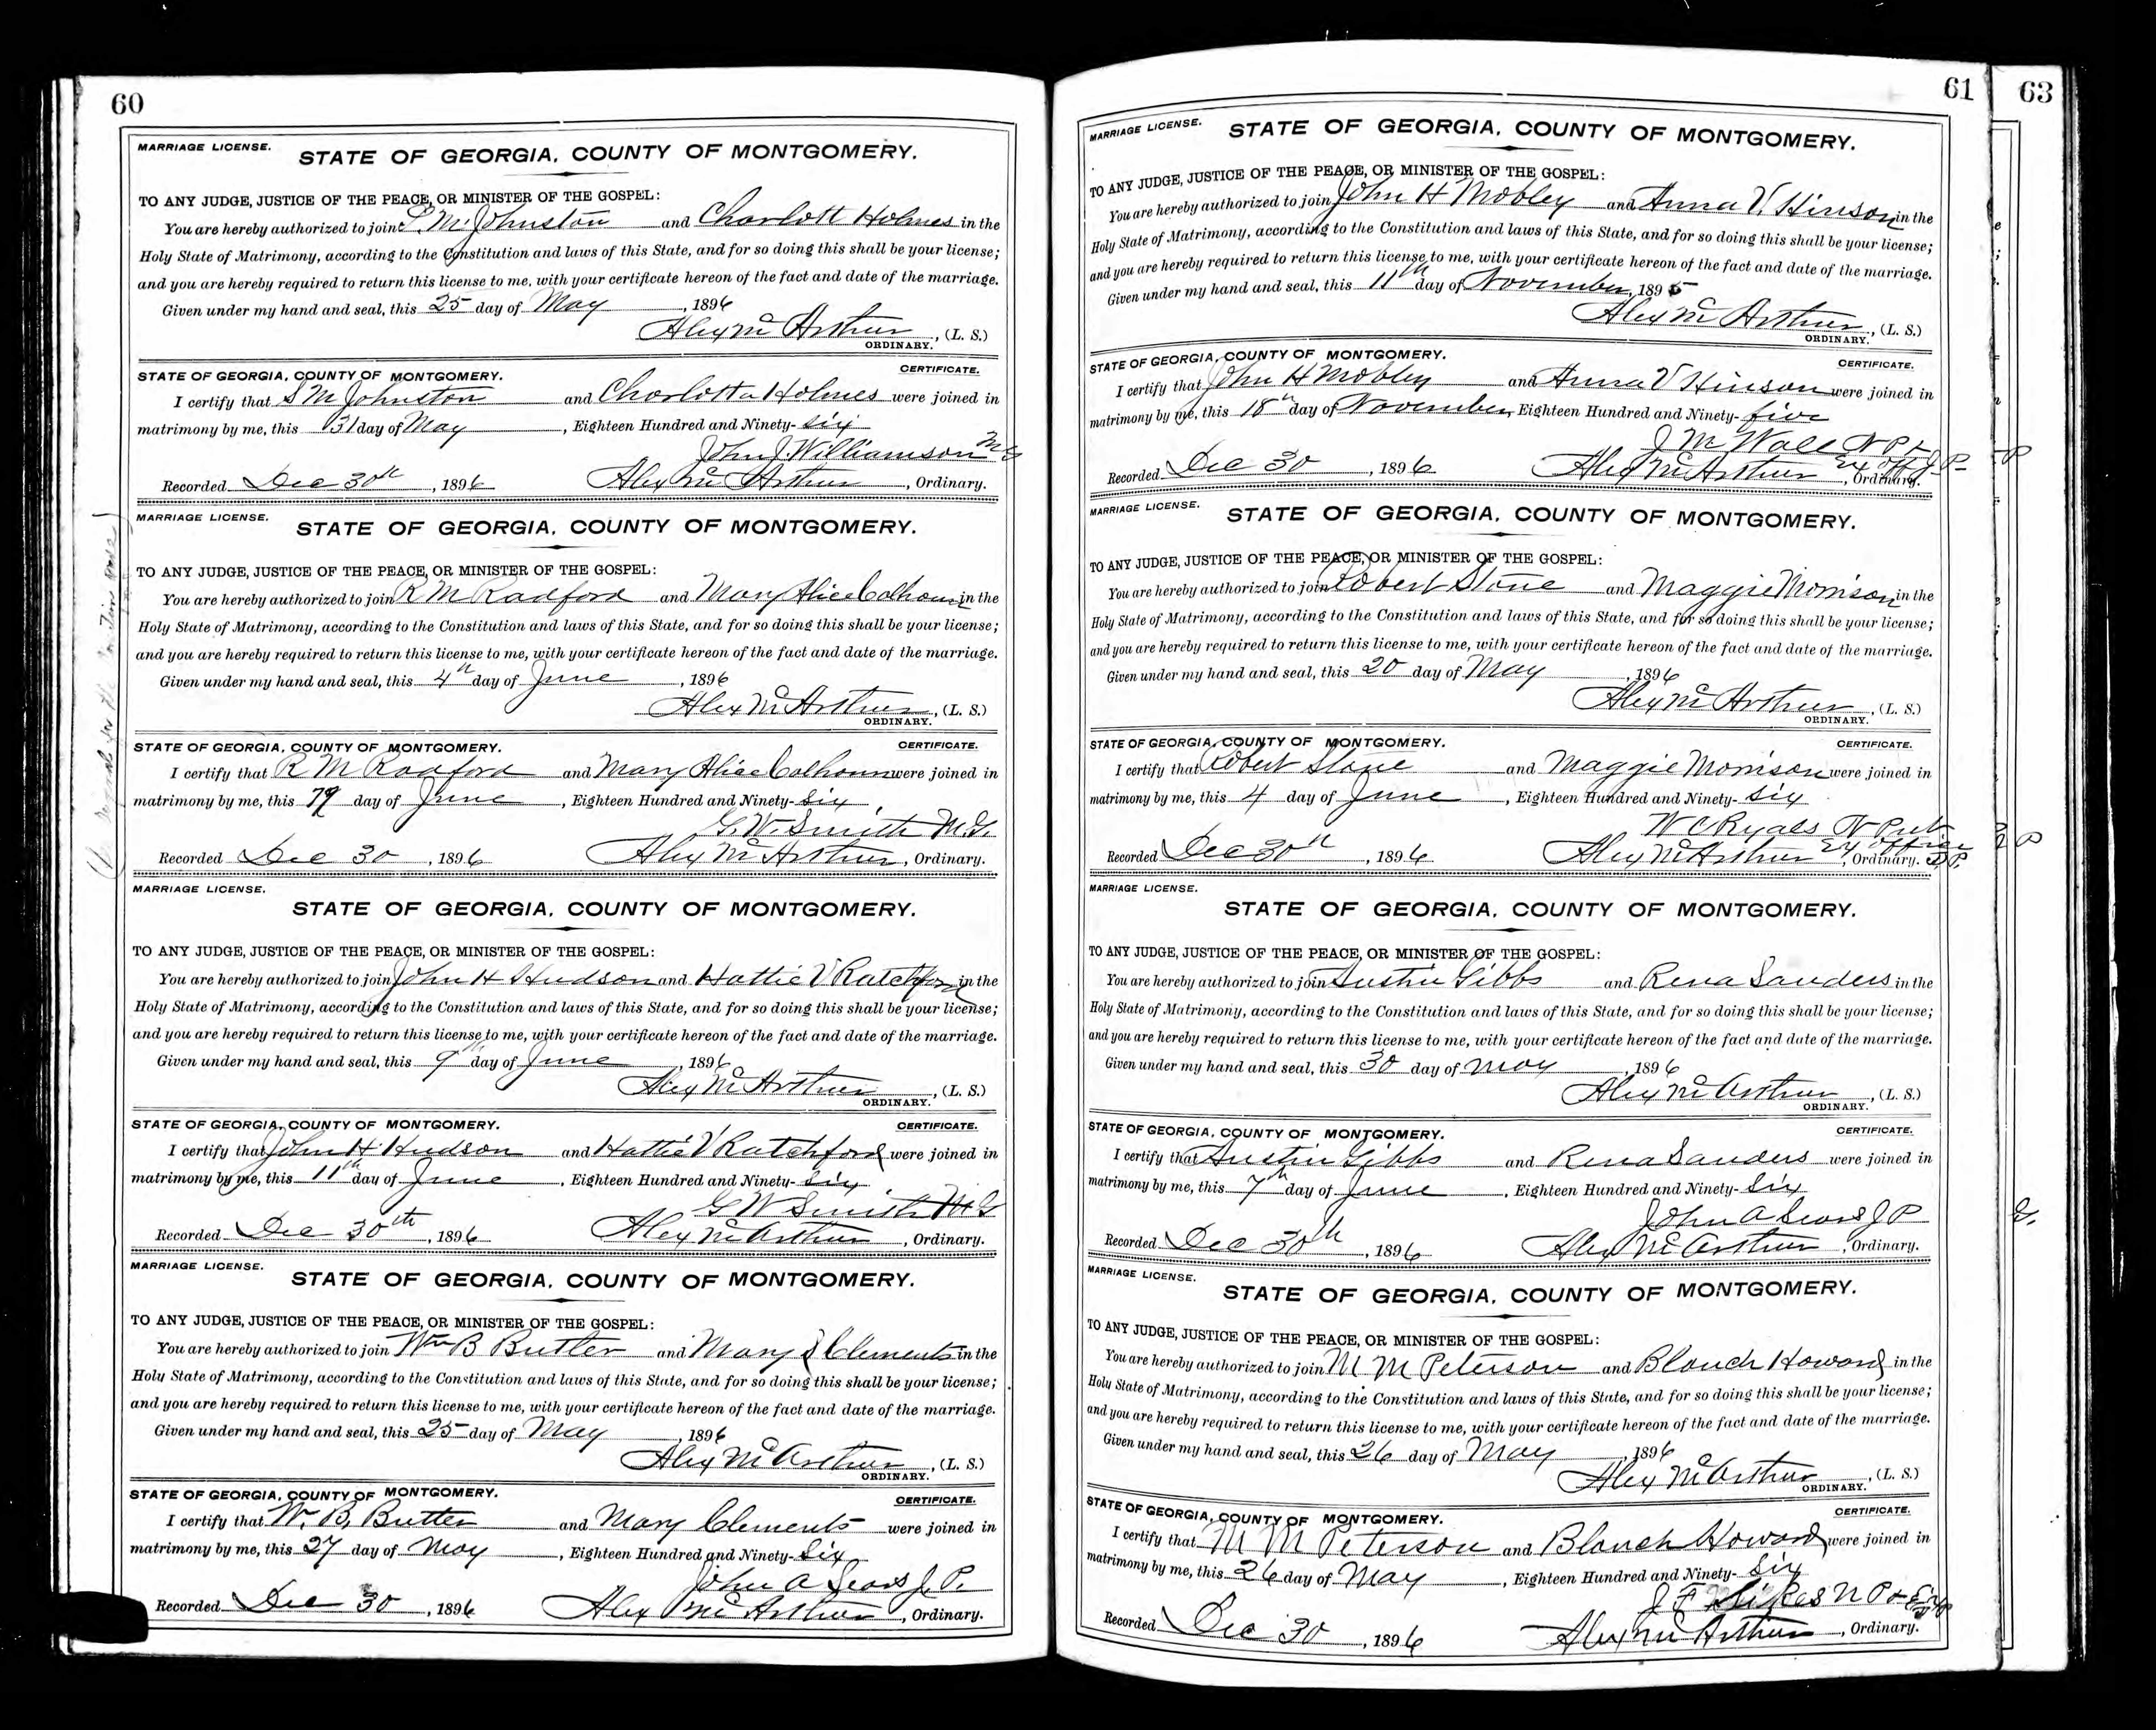 60
MARRIAGE LICENSE.
STATE OF GEORGIA, COUNTY OF MONTGOMERY.
TO ANY JUDGE, JUSTICE OF THE PEACE, OR MINISTER OF THE GOSPEL:
You are hereby authorized to join S. M. Johnston and Charlott Holmes in the
Holy State of Matrimony, according to the Constitution and laws of this State, and for so doing this shall be your license;
and you are hereby required to return this license to me, with your certificate hereon of the fact and date of the marriage.
Given under my hand and seal, this 25 day of May, 1896
Alex McArthur, (L. S.)
ORDINARY.
STATE OF GEORGIA, COUNTY OF MONTGOMERY. CERTIFICATE.
I certify that S M Johnston and Charlotta Holmes were joined in
matrimony by me, this 31 day of May, Eighteen Hundred and Ninety-six
John J. Williamson M G
Recorded Dec 30th, 1896 Alex McArthur, Ordinary.
MARRIAGE LICENSE.
STATE OF GEORGIA, COUNTY OF MONTGOMERY.
TO ANY JUDGE, JUSTICE OF THE PEACE, OR MINISTER OF THE GOSPEL:
You are hereby authorized to join R M Radford and Mary Alice Calhoun in the
Holy State of Matrimony, according to the Constitution and laws of this State, and for so doing this shall be your license;
and you are hereby required to return this license to me, with your certificate hereon of the fact and date of the marriage.
Given under my hand and seal, this 4th day of June, 1896
Alex McArthur, (L. S.)
ORDINARY.
STATE OF GEORGIA, COUNTY OF MONTGOMERY. CERTIFICATE.
I certify that R M Radford and Mary Alice Calhoun were joined in
matrimony by me, this day of June, Eighteen Hundred and Ninety-six,
G. W. Smith M. G.
Recorded Dec 30, 1896 Alex McArthur, Ordinary.
MARRIAGE LICENSE.
STATE OF GEORGIA, COUNTY OF MONTGOMERY.
TO ANY JUDGE, JUSTICE OF THE PEACE, OR MINISTER OF THE GOSPEL:
You are hereby authorized to join John H Hudson and Hattie V Ratchford in the
Holy State of Matrimony, according to the Constitution and laws of this State, and for so doing this shall be your license;
and you are hereby required to return this license to me, with your certificate hereon of the fact and date of the marriage.
Given under my hand and seal, this 9th day of June, 1896
Alex McArthur, (L. S.)
ORDINARY.
STATE OF GEORGIA, COUNTY OF MONTGOMERY. CERTIFICATE.
I certify that John H Hudson and Hattie V Ratchford were joined in
matrimony by me, this 11th day of June, Eighteen Hundred and Ninety-six,
G W Smith M G
Recorded Dec 30th, 1896 Alex McArthur, Ordinary.
MARRIAGE LICENSE.
STATE OF GEORGIA, COUNTY OF MONTGOMERY.
TO ANY JUDGE, JUSTICE OF THE PEACE, OR MINISTER OF THE GOSPEL:
You are hereby authorized to join Wm B Butler and Mary Clements in the
Holy State of Matrimony, according to the Constitution and laws of this State, and for so doing this shall be your license;
and you are hereby required to return this license to me, with your certificate hereon of the fact and date of the marriage.
Given under my hand and seal, this 25 day of May, 1896
Alex McArthur, (L. S.)
ORDINARY.
STATE OF GEORGIA, COUNTY OF MONTGOMERY. CERTIFICATE.
I certify that W. B. Butler and Mary Clements were joined in
matrimony by me, this 27 day of May, Eighteen Hundred and Ninety-six
John A Sears J. P.
Recorded Dec 30, 1896 Alex McArthur, Ordinary.
61
MARRIAGE LICENSE.
STATE OF GEORGIA, COUNTY OF MONTGOMERY.
TO ANY JUDGE, JUSTICE OF THE PEACE, OR MINISTER OF THE GOSPEL:
You are hereby authorized to join John H Mobley and Anna V. Hinson in the
Holy State of Matrimony, according to the Constitution and laws of this State, and for so doing this shall be your license;
and you are hereby required to return this license to me, with your certificate hereon of the fact and date of the marriage.
Given under my hand and seal, this 11th day of November, 1895
Alex McArthur, (L. S.)
ORDINARY.
STATE OF GEORGIA, COUNTY OF MONTGOMERY. CERTIFICATE.
I certify that John H Mobley and Anna V Hinson were joined in
matrimony by me, this 18th day of November, Eighteen Hundred and Ninety-five
J M Wall N P &
Ex off J P
Recorded Dec 30, 1896 Alex McArthur, Ordinary.
MARRIAGE LICENSE.
STATE OF GEORGIA, COUNTY OF MONTGOMERY.
TO ANY JUDGE, JUSTICE OF THE PEACE, OR MINISTER OF THE GOSPEL:
You are hereby authorized to join Robert Stone and Maggie Morrison in the
Holy State of Matrimony, according to the Constitution and laws of this State, and for so doing this shall be your license;
and you are hereby required to return this license to me, with your certificate hereon of the fact and date of the marriage.
Given under my hand and seal, this 20 day of May, 1896
Alex McArthur, (L. S.)
ORDINARY.
STATE OF GEORGIA, COUNTY OF MONTGOMERY. CERTIFICATE.
I certify that Robert Stone and Maggie Morrison were joined in
matrimony by me, this 4 day of June, Eighteen Hundred and Ninety-six
W C Ryals N Pub
Ex officio J. P.
Recorded Dec 30th, 1896 Alex McArthur, Ordinary.
MARRIAGE LICENSE.
STATE OF GEORGIA, COUNTY OF MONTGOMERY.
TO ANY JUDGE, JUSTICE OF THE PEACE, OR MINISTER OF THE GOSPEL:
You are hereby authorized to join Austin Gibbs and Rena Sanders in the
Holy State of Matrimony, according to the Constitution and laws of this State, and for so doing this shall be your license;
and you are hereby required to return this license to me, with your certificate hereon of the fact and date of the marriage.
Given under my hand and seal, this 30 day of May, 1896
Alex McArthur, (L. S.)
ORDINARY.
STATE OF GEORGIA, COUNTY OF MONTGOMERY. CERTIFICATE.
I certify that Austin Gibbs and Rena Sanders were joined in
matrimony by me, this 7th day of June, Eighteen Hundred and Ninety-six
John A Sears J P
Recorded Dec 30th, 1896 Alex McArthur, Ordinary.
MARRIAGE LICENSE.
STATE OF GEORGIA, COUNTY OF MONTGOMERY.
TO ANY JUDGE, JUSTICE OF THE PEACE, OR MINISTER OF THE GOSPEL:
You are hereby authorized to join M M Peterson and Blanch Howard in the
Holy State of Matrimony, according to the Constitution and laws of this State, and for so doing this shall be your license;
and you are hereby required to return this license to me, with your certificate hereon of the fact and date of the marriage.
Given under my hand and seal, this 26 day of May, 1896
Alex McArthur, (L. S.)
ORDINARY.
STATE OF GEORGIA, COUNTY OF MONTGOMERY. CERTIFICATE.
I certify that M M Peterson and Blanch Howard were joined in
matrimony by me, this 26 day of May, Eighteen Hundred and Ninety-six
J F Sikes N P &
Recorded Dec 30, 1896 Alex McArthur, Ordinary.
63